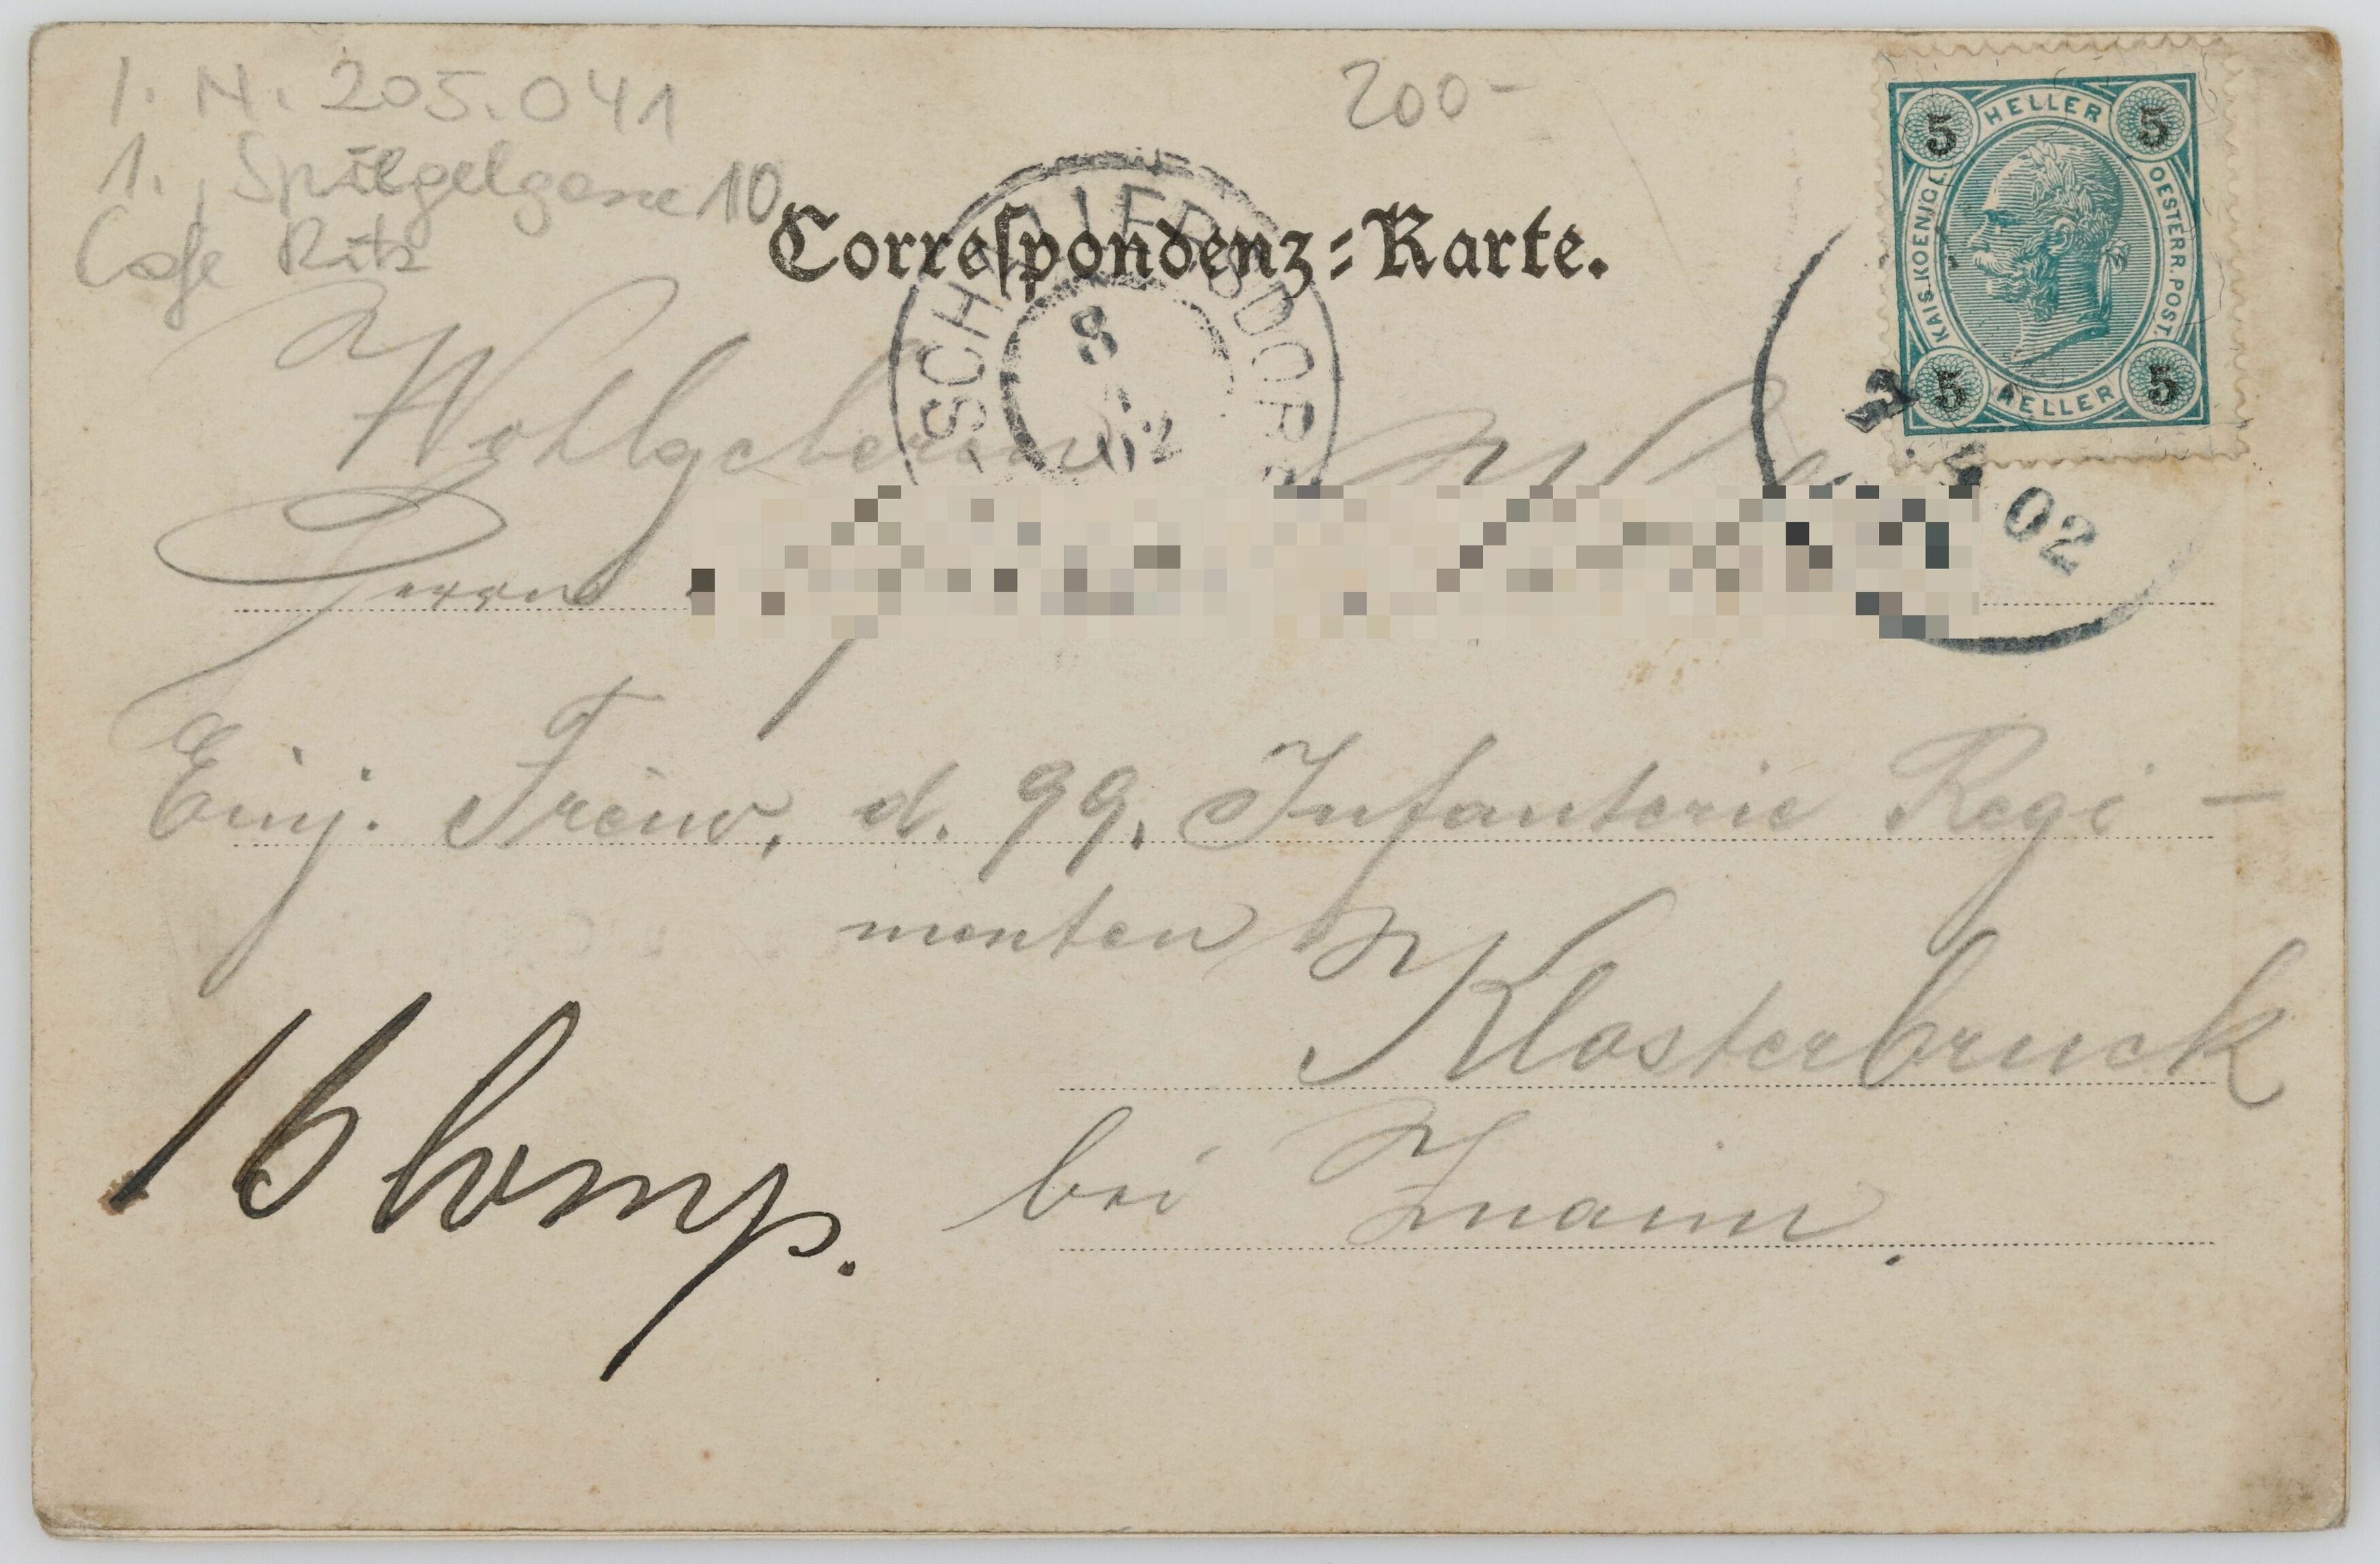 I. N. 205.041
200-
1., Spiegelgasse 10
Cafe Ritz
Correſpondenz=Karte.
HELLER
KAIS. KOENIGL.
OESTERR. POST.
HELLER
5 5 5 5
SCH
DORF
8
02
Wohlgeboren
Herrn
Einj. Freiw. d. 99. Infanterie Regi-
menten
Klosterbruck
16 Comp.
bei Znaim.